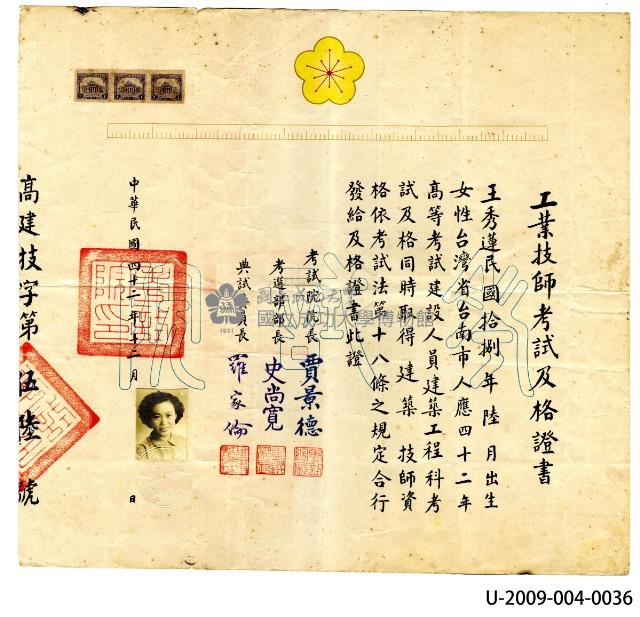 工業技師考試及格證書
王秀蓮民國拾捌年陸月出生
女性台灣省台南市人應四十二年
高等考試建設人員建築工程科考
試及格同時取得建築技師資
格依考試法第十八條之規定合行
發給及格證書此證
考試院院長 賈景德
考選部部長 史尚寬
典試委員長 羅家倫
中華民國四十二年十二月 日
高建技字第伍陸號
國立成功大學博物館
1931
U-2009-004-0036